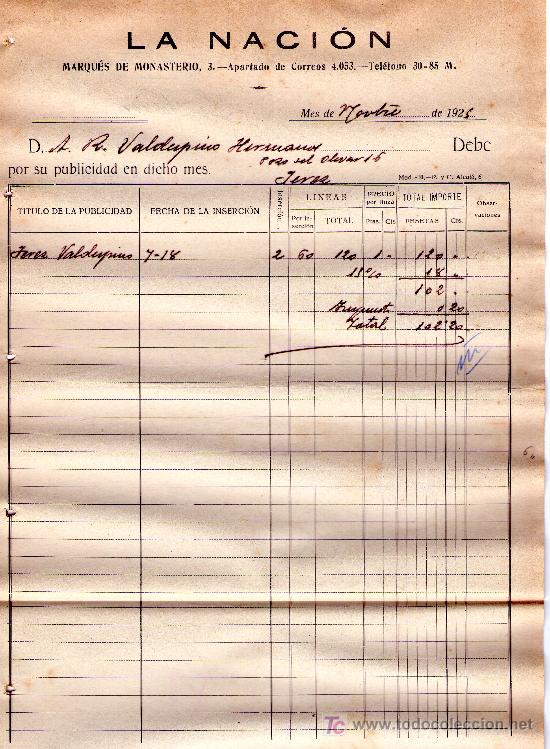 LA NACIÓN
MARQUÉS DE MONASTERIO, 3.—Apartado de Correos 4.053.—Teléfono 30-85 M.
Mes de Novbre de 1925
D. A. R. Valdespino Hermanos Debe
Pozo del Olivar 16
por su publicidad en dicho mes.
Jerez
Mod. -10.-P. y C. Alcalá, 6
TITULO DE LA PUBLICIDAD FECHA DE LA INSERCIÓN Inserción LINEAS Por inserción TOTAL PRECIO por línea Ptas. Cts TOTAL IMPORTE PESETAS Cts. Observaciones
Jerez Valdespino 7-18 2 60 120 1 " 120 "
15% 18 "
102 "
Impuest. 0 20
Total 102 20
TC www.todocoleccion.net